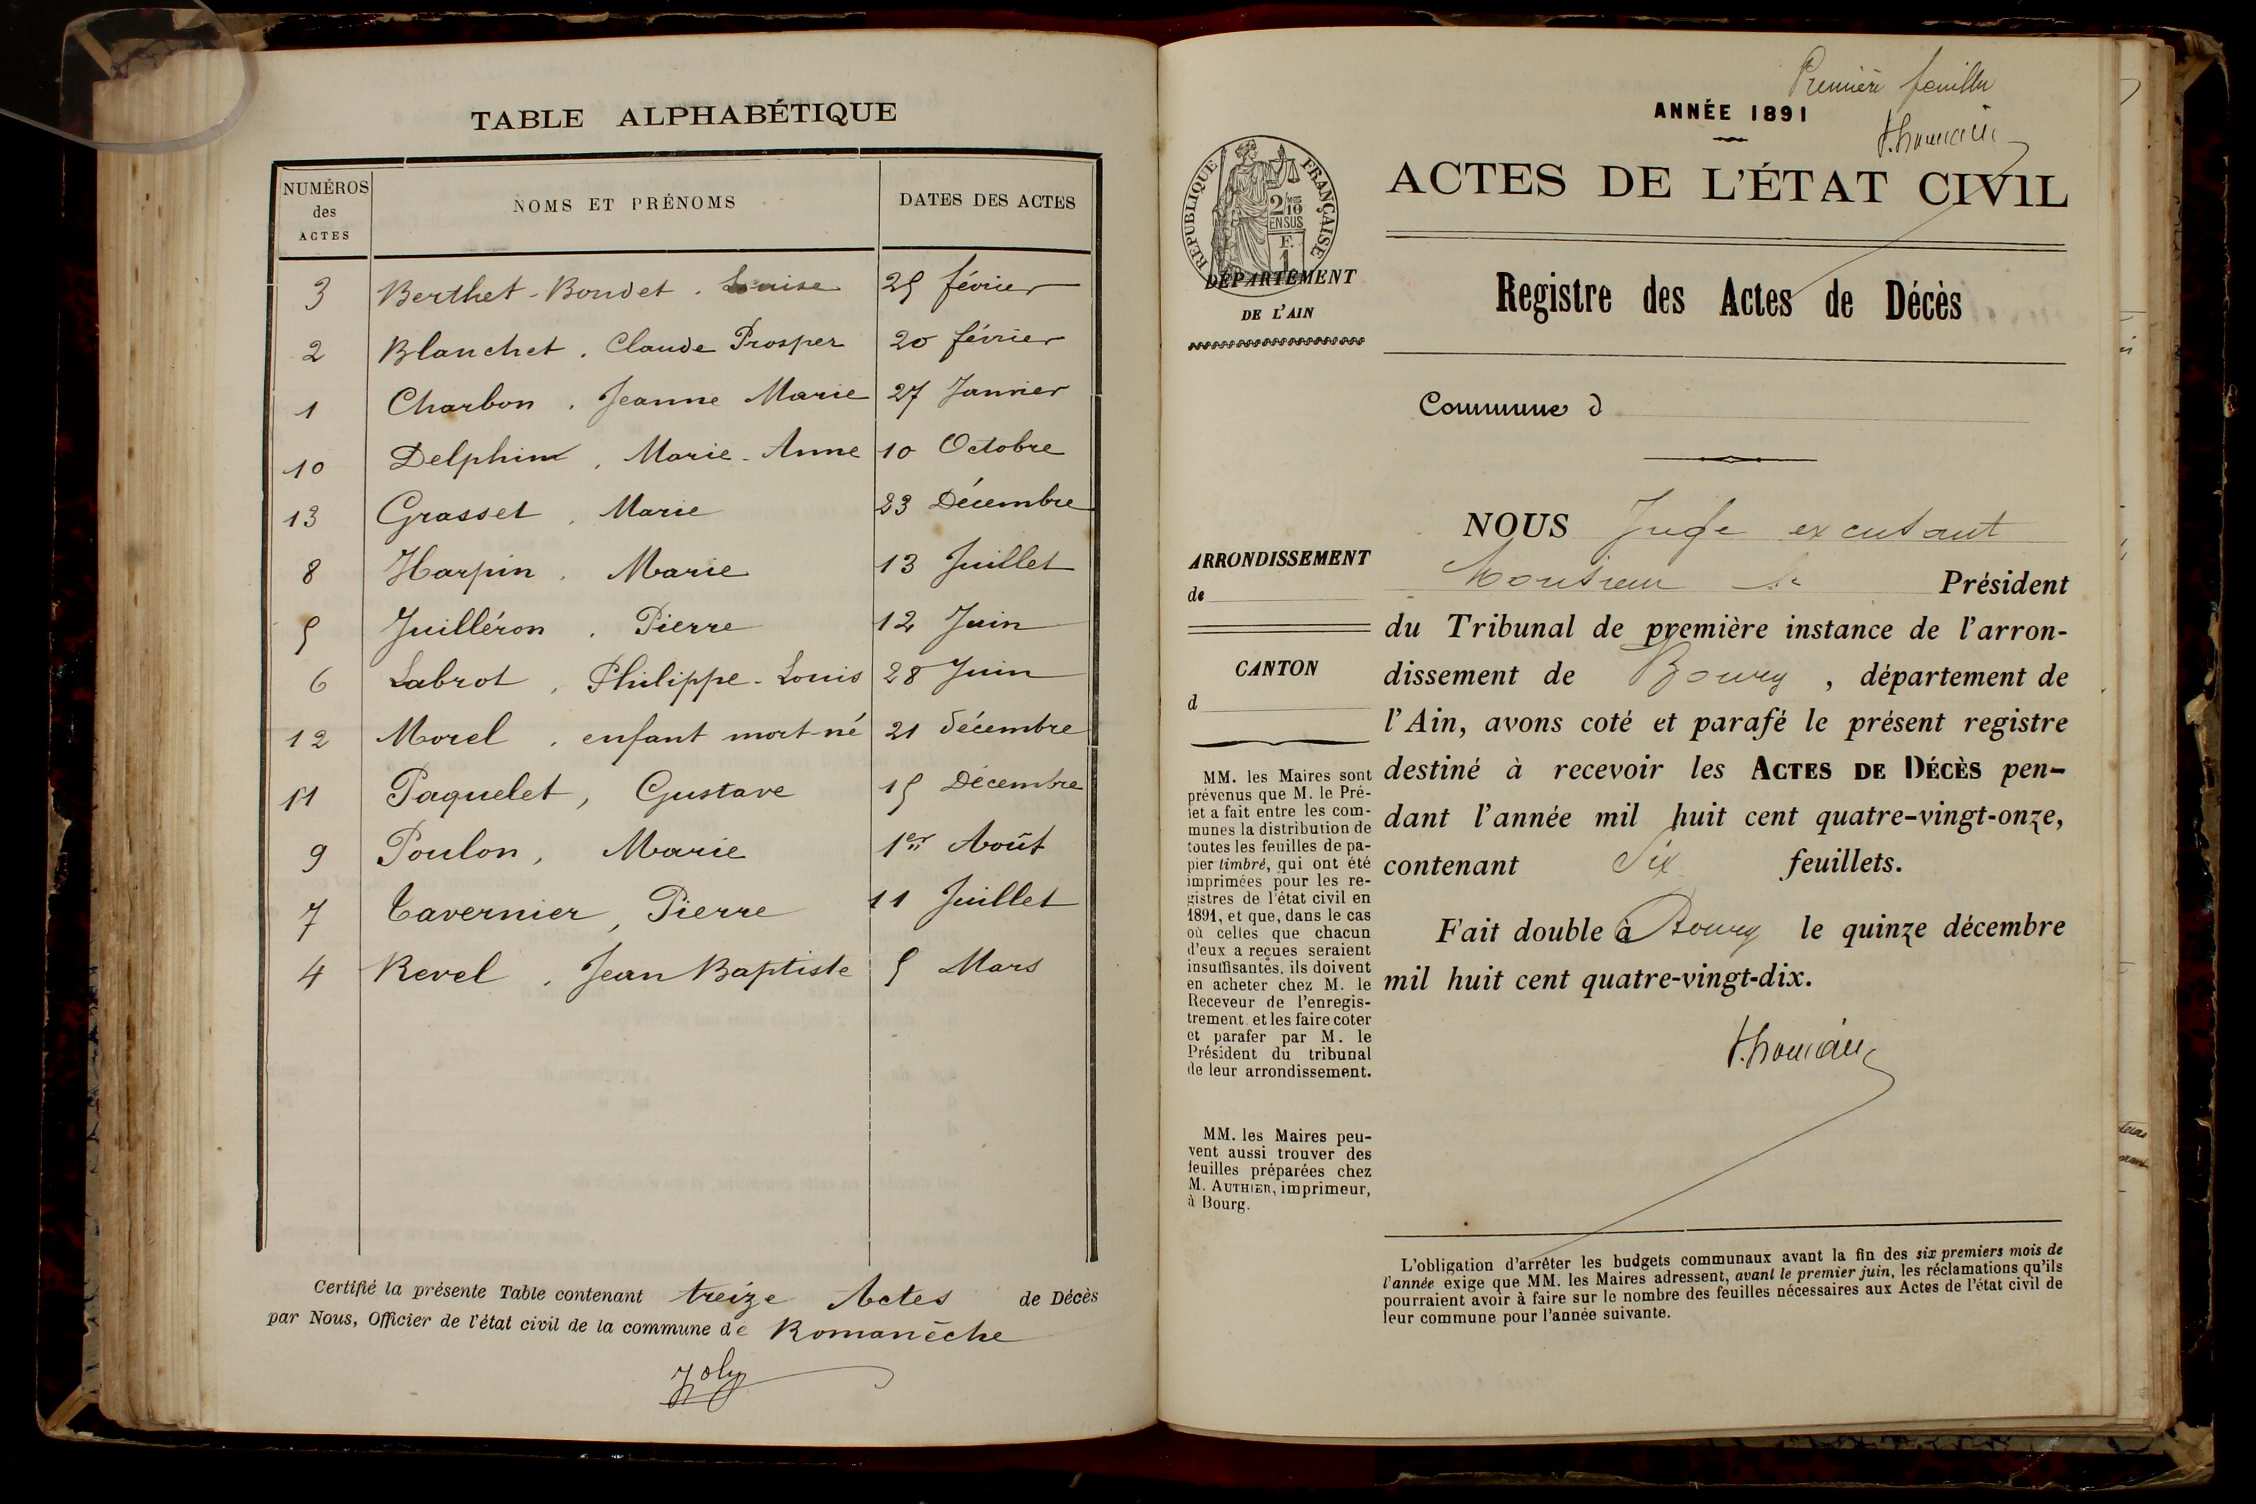 TABLE ALPHABÉTIQUE
NUMÉROS des ACTES NOMS ET PRÉNOMS DATES DES ACTES
3 Berthet-Boudet. Louise 25 février
2 Blanchet. Claude Prosper 20 février
1 Charbon. Jeanne Marie 27 Janvier
10 Delphin, Marie-Anne 10 Octobre
13 Grasset, Marie 23 Décembre
8 Harpin. Marie 13 Juillet
5 Juilléron. Pierre 12 Juin
6 Labrot, Philippe-Louis 28 Juin
12 Morel. enfant mort-né 21 décembre
11 Paquelet, Gustave 15 Décembre
9 Poulon, Marie 1er Août
7 Tavernier, Pierre 11 Juillet
4 Revel. Jean Baptiste 5 Mars
Certifié la présente Table contenant treize Actes de Décès
par Nous, Officier de l'état civil de la commune de Romanèche
Joly
Première feuille
ANNÉE 1891
ACTES DE L'ÉTAT CIVIL
RÉPUBLIQUE FRANÇAISE
2/10
EN SUS
F.
1
DÉPARTEMENT
DE L'AIN
Registre des Actes de Décès
Commune d
ARRONDISSEMENT
de
CANTON
d
MM. les Maires sont
prévenus que M. le Pré-
fet a fait entre les com-
munes la distribution de
toutes les feuilles de pa-
pier timbré, qui ont été
imprimées pour les re-
gistres de l'état civil en
1891, et que, dans le cas
où celles que chacun
d'eux a reçues seraient
insuffisantes, ils doivent
en acheter chez M. le
Receveur de l'enregis-
trement et les faire coter
et parafer par M. le
Président du tribunal
de leur arrondissement.
MM. les Maires peu-
vent aussi trouver des
feuilles préparées chez
M. AUTHIER, imprimeur,
à Bourg.
NOUS Juge
Monsieur le Président
du Tribunal de première instance de l'arron-
dissement de Bourg, département de
l'Ain, avons coté et parafé le présent registre
destiné à recevoir les ACTES DE DÉCÈS pen-
dant l'année mil huit cent quatre-vingt-onze,
contenant Six feuillets.
Fait double à Bourg le quinze décembre
mil huit cent quatre-vingt-dix.
L'obligation d'arrêter les budgets communaux avant la fin des six premiers mois de
l'année exige que MM. les Maires adressent, avant le premier juin, les réclamations qu'ils
pourraient avoir à faire sur le nombre des feuilles nécessaires aux Actes de l'état civil de
leur commune pour l'année suivante.